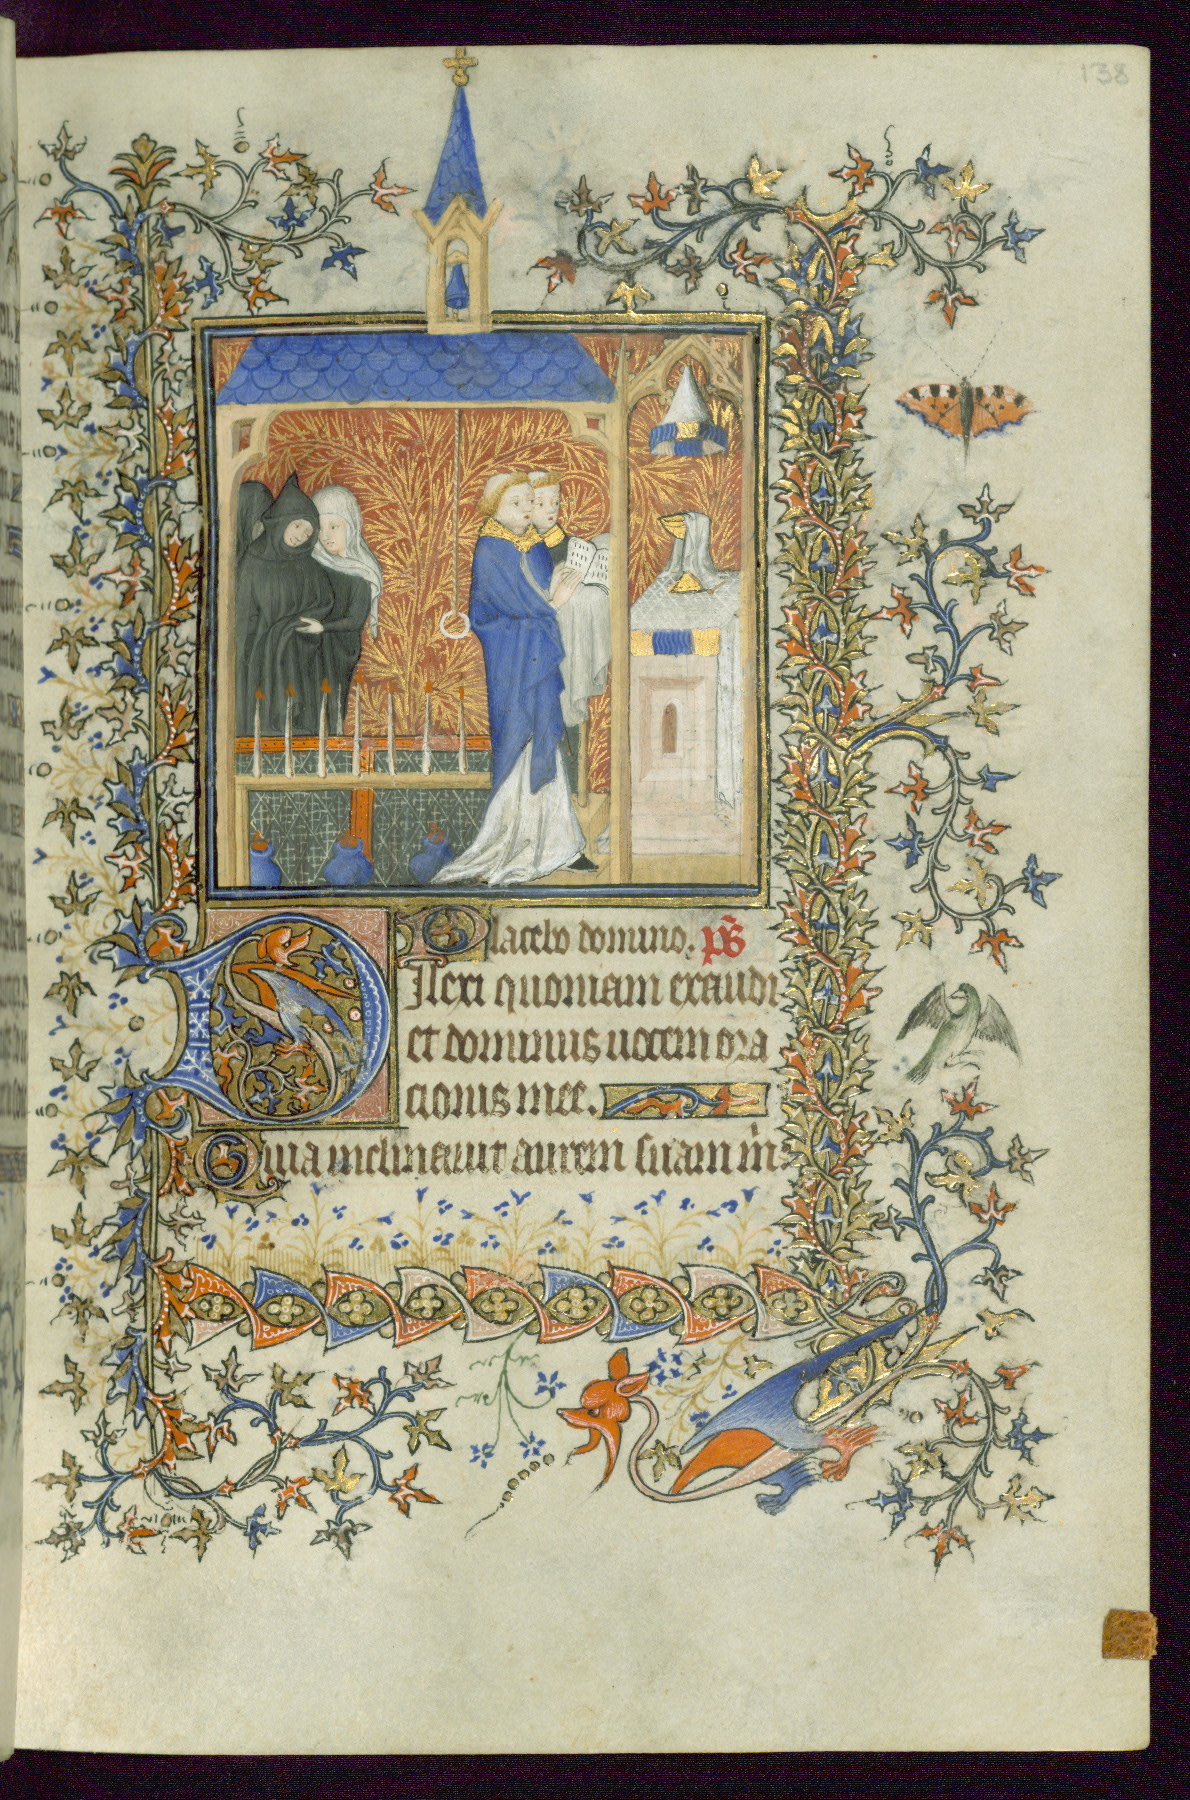 138
Placebo domino. ps̄
Dilexi quoniam exaudi
et dominus uocem ora
cionis mee.
Quia inclinauit aurem suam m̄